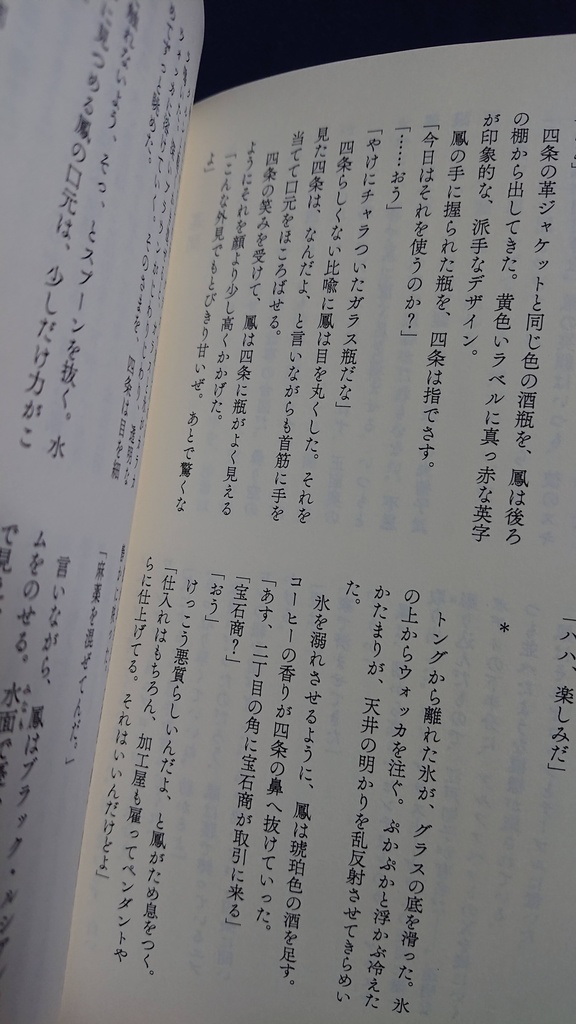 四条の革ジャケットと同じ色の酒瓶を、鳳は後ろ
の棚から出してきた。黄色いラベルに真っ赤な英字
が印象的な、派手なデザイン。
鳳の手に握られた瓶を、四条は指でさす。
「今日はそれを使うのか?」
「……おう」
「やけにチャラついたガラス瓶だな」
四条らしくない比喩に鳳は目を丸くした。それを
見た四条は、なんだよ、と言いながらも首筋に手を
当てて口元をほころばせる。
四条の笑みを受けて、鳳は四条に瓶がよく見える
ようにそれを顔より少し高くかかげた。
「こんな外見でもとびきり甘いぜ。あとで驚くな
よ」
「ハハ、楽しみだ」
*
トングから離れた氷が、グラスの底を滑った。氷
の上からウォッカを注ぐ。ぷかぷかと浮かぶ冷えた
かたまりが、天井の明かりを乱反射させてきらめい
た。
氷を溺れさせるように、鳳は琥珀色の酒を足す。
コーヒーの香りが四条の鼻へ抜けていった。
「あす、二丁目の角に宝石商が取引に来る」
「宝石商?」
「おう」
けっこう悪質らしいんだよ、と鳳がため息をつく。
「仕入れはもちろん、加工屋も雇ってペンダントや
らに仕上げてる。それはいいんだけどよ」
「麻薬を混ぜてんだ。」
めてずっと眺めた。
そのさまを、四条は目を細
触れないよう、そっ、とスプーンを抜く。水
に見つめる鳳の口元は、少しだけ力がこ
言いながら、鳳はブラック・ルシアン
ムをのせる。水面で